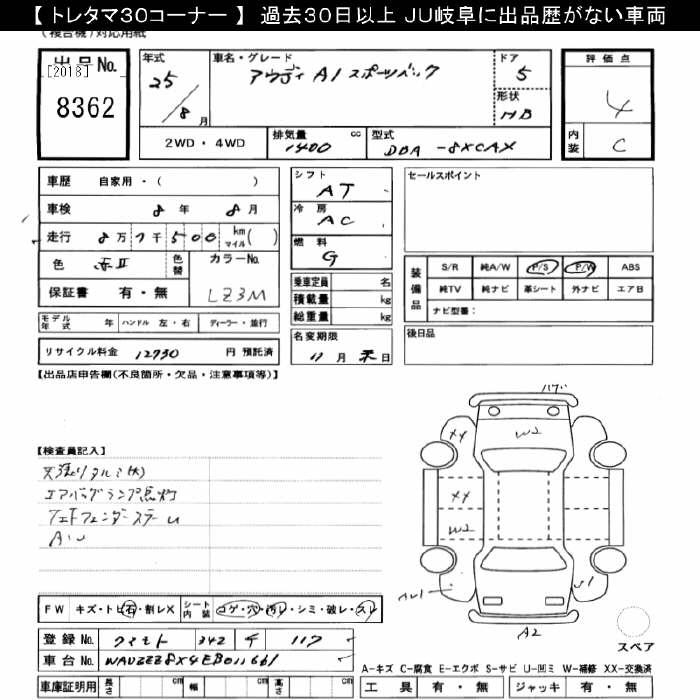 【 トレタマ30コーナー 】 過去30日以上 JU岐阜に出品歴がない車両
(複合機)対応用紙
出 品 No.
[2018]
8362
年式
25/8月
車名・グレード
アウディ A1 スポーツバック
ドア
5
形状
HB
評価点
4
内装
C
2WD・4WD
排気量
1400 cc
型式
DBA -8XCAX
車歴 自家用・( )
車検 8年 8月
走行 8万7千500 km マイル( )
色 赤II 色替
カラーNo.
LZ3M
保証書 有・無
シフト
AT
冷房
AC
燃料
G
乗車定員 名
積載量 kg
総重量 kg
名変期限
11月 末日
セールスポイント
装備品
S/R 純A/W P/S P/W ABS
純TV 純ナビ 革シート 外ナビ エアB
ナビ型番:
後日品
モデル年式 年 ハンドル 左・右 ディーラー・並行
リサイクル料金 12730 円 預託済
【出品店申告欄(不良箇所・欠品・注意事項等)】
【検査員記入】
天張りタルミ(大)
エアバッグランプ点灯
AU
XX
W2
XX
W2
AU1
U1
A2
スペア
FW キズ・トビ石・割レX シート内装 コゲ・穴・汚レ・シミ・破レ・スレ
登録 No. クマモト 342 チ 117
車台 No. WAUZZZ8X4EB011661
車庫証明用 長さ cm 幅 cm 高さ cm
A-キズ C-腐食 E-エクボ S-サビ U-凹ミ W-補修 XX-交換済
工 具 有・無 ジャッキ 有・無